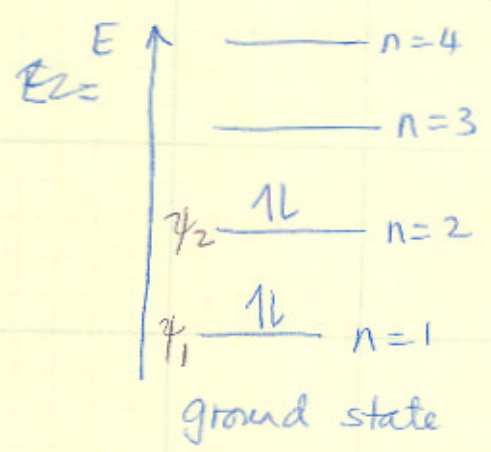 E
n=4
E₂=
n=3
ψ₂ 1l n=2
ψ₁ 1l n=1
ground state